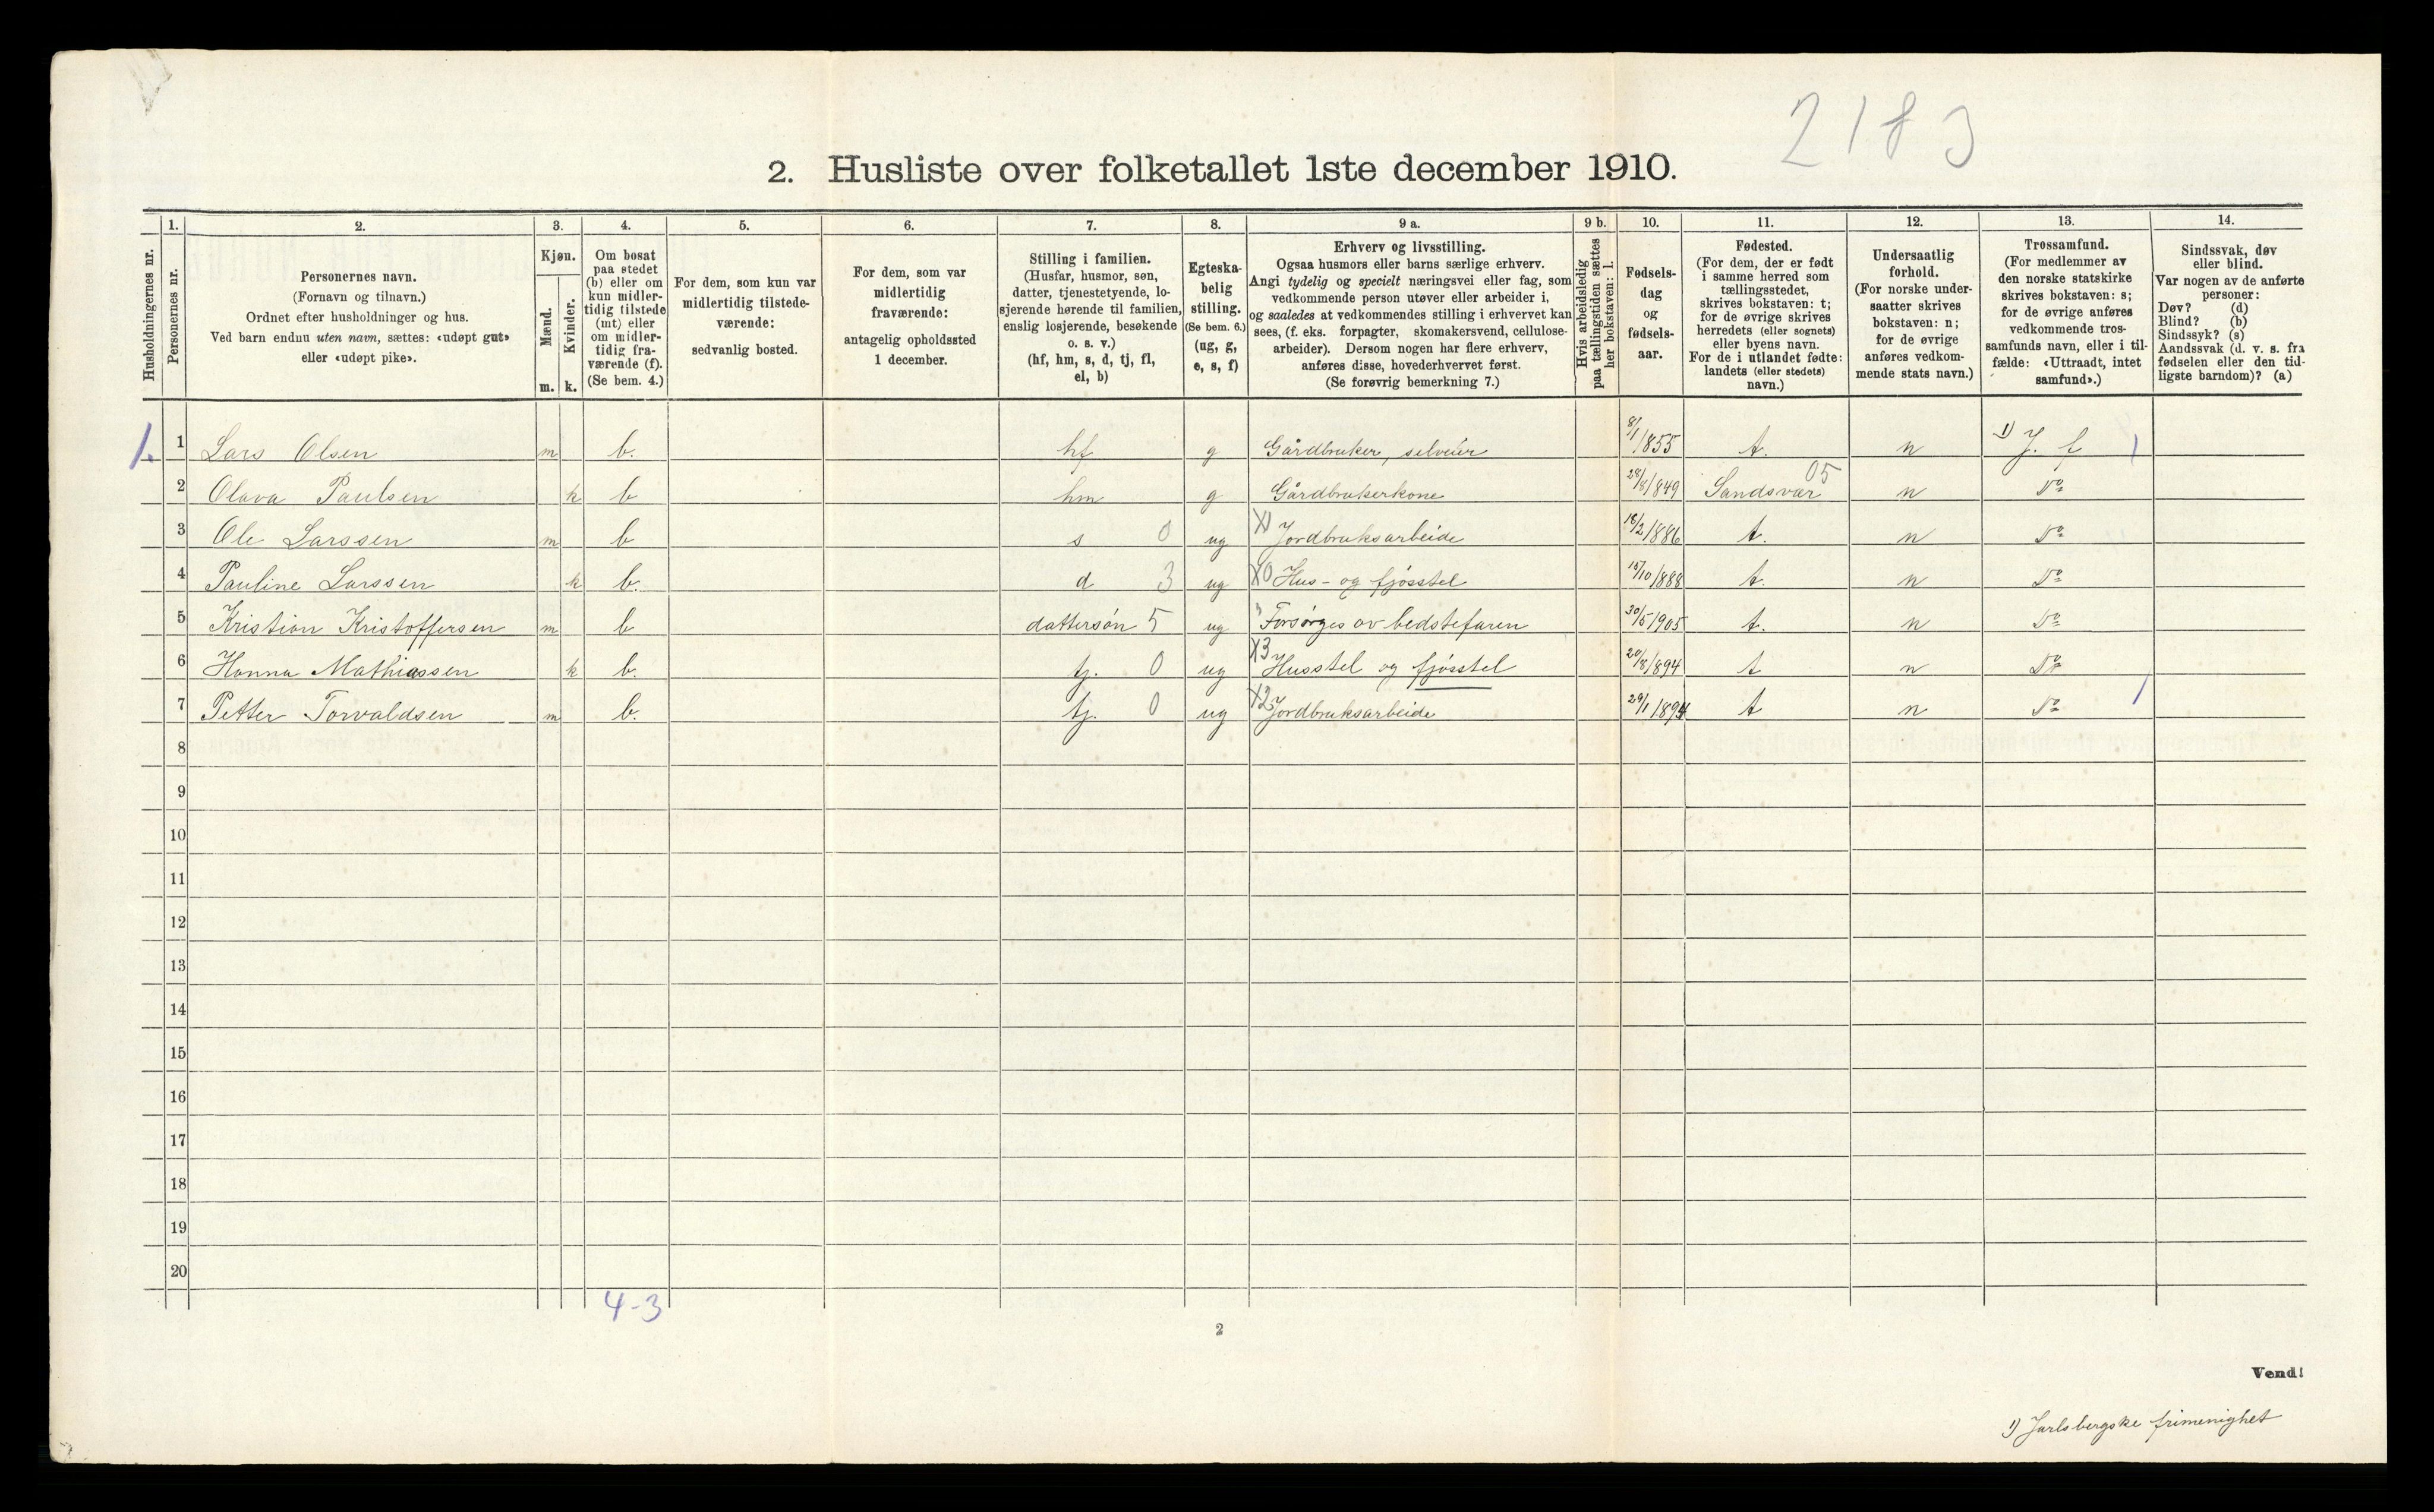 2183
2. Husliste over folketallet 1ste december 1910.
Husholdningernes nr.
1. Personernes nr.
2. Personernes navn.
(Fornavn og tilnavn.)
Ordnet efter husholdninger og hus.
Ved barn endnu uten navn, sættes: «udøpt gut»
eller «udøpt pike».
3. Kjøn.
Mænd. m.
Kvinder. k.
4. Om bosat
paa stedet
(b) eller om
kun midler-
tidig tilstede
(mt) eller
om midler-
tidig fra-
værende (f).
(Se bem. 4.)
5. For dem, som kun var
midlertidig tilstede-
værende:
sedvanlig bosted.
6. For dem, som var
midlertidig
fraværende:
antagelig opholdssted
1 december.
7. Stilling i familien.
(Husfar, husmor, søn,
datter, tjenestetyende, lo-
sjerende hørende til familien,
enslig losjerende, besøkende
o. s. v.)
(hf, hm, s, d, tj, fl,
el, b)
8. Egteska-
belig
stilling.
(Se bem. 6.)
(ug, g,
e, s, f)
9 a. Erhverv og livsstilling.
Ogsaa husmors eller barns særlige erhverv.
Angi tydelig og specielt næringsvei eller fag, som
vedkommende person utøver eller arbeider i,
og saaledes at vedkommendes stilling i erhvervet kan
sees, (f. eks. forpagter, skomakersvend, cellulose-
arbeider). Dersom nogen har flere erhverv,
anføres disse, hovederhvervet først.
(Se forøvrig bemerkning 7.)
9 b. Hvis arbeidsledig
paa tællingstiden sættes
her bokstaven: l.
10. Fødsels-
dag
og
fødsels-
aar.
11. Fødested.
(For dem, der er født
i samme herred som
tællingsstedet,
skrives bokstaven: t;
for de øvrige skrives
herredets (eller sognets)
eller byens navn.
For de i utlandet fødte:
landets (eller stedets)
navn.)
12. Undersaatlig
forhold.
(For norske under-
saatter skrives
bokstaven: n;
for de øvrige
anføres vedkom-
mende stats navn.)
13. Trossamfund.
(For medlemmer av
den norske statskirke
skrives bokstaven: s;
for de øvrige anføres
vedkommende tros-
samfunds navn, eller i til-
fælde: «Uttraadt, intet
samfund».)
14. Sindssvak, døv
eller blind.
Var nogen av de anførte
personer:
Døv? (d)
Blind? (b)
Sindssyk? (s)
Aandssvak (d. v. s. fra
fødselen eller den tid-
ligste barndom)? (a)
1. 1 Lars Olsen m b. hf g Gårdbruker, selveier 8/1 1855 t. n 1) J. f
2 Olava Paulsen k b hm g Gårdbrukerkone 28/8 1849 Sandsvær 05 n Do
3 Ole Larssen m b s 0 ug X1 Jordbruksarbeide 18/2 1886 t. n Do
4 Pauline Larssen k b. d 3 ug X0 Hus- og fjøsstel 15/10 1888 t. n Do
5 Kristian Kristoffersen m b dattersøn 5 ug Forsørges av bedstefaren 30/5 1905 t. n Do
6 Hanna Mathiassen k b. tj. 0 ug X3 Husstel og fjøsstel 20/8 1894 t n Do
7 Petter Torvaldsen m b. tj. 0 ug X2 Jordbruksarbeide 29/1 1894 t n Do
8
9
10
11
12
13
14
15
16
17
18
19
20
4-3
2
Vend!
1) Jarlsbergske frimenighet